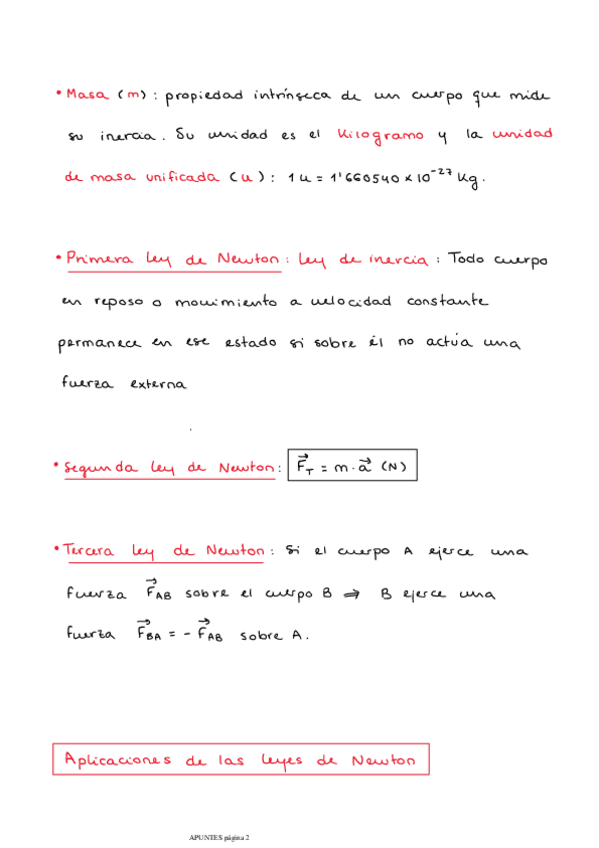 • Masa (m) : propiedad intrínseca de un cuerpo que mide
su inercia. Su unidad es el Kilogramo y la unidad
de masa unificada (u) : 1 u = 1'660540 × 10⁻²⁷ Kg.
• Primera ley de Newton : ley de inercia : Todo cuerpo
en reposo o movimiento a velocidad constante
permanece en ese estado si sobre él no actúa una
fuerza externa
• Segunda ley de Newton : F⃗_T = m · a⃗ (N)
• Tercera ley de Newton : Si el cuerpo A ejerce una
fuerza F⃗_AB sobre el cuerpo B ⇒ B ejerce una
fuerza F⃗_BA = - F⃗_AB sobre A.
Aplicaciones de las leyes de Newton
APUNTES página 2